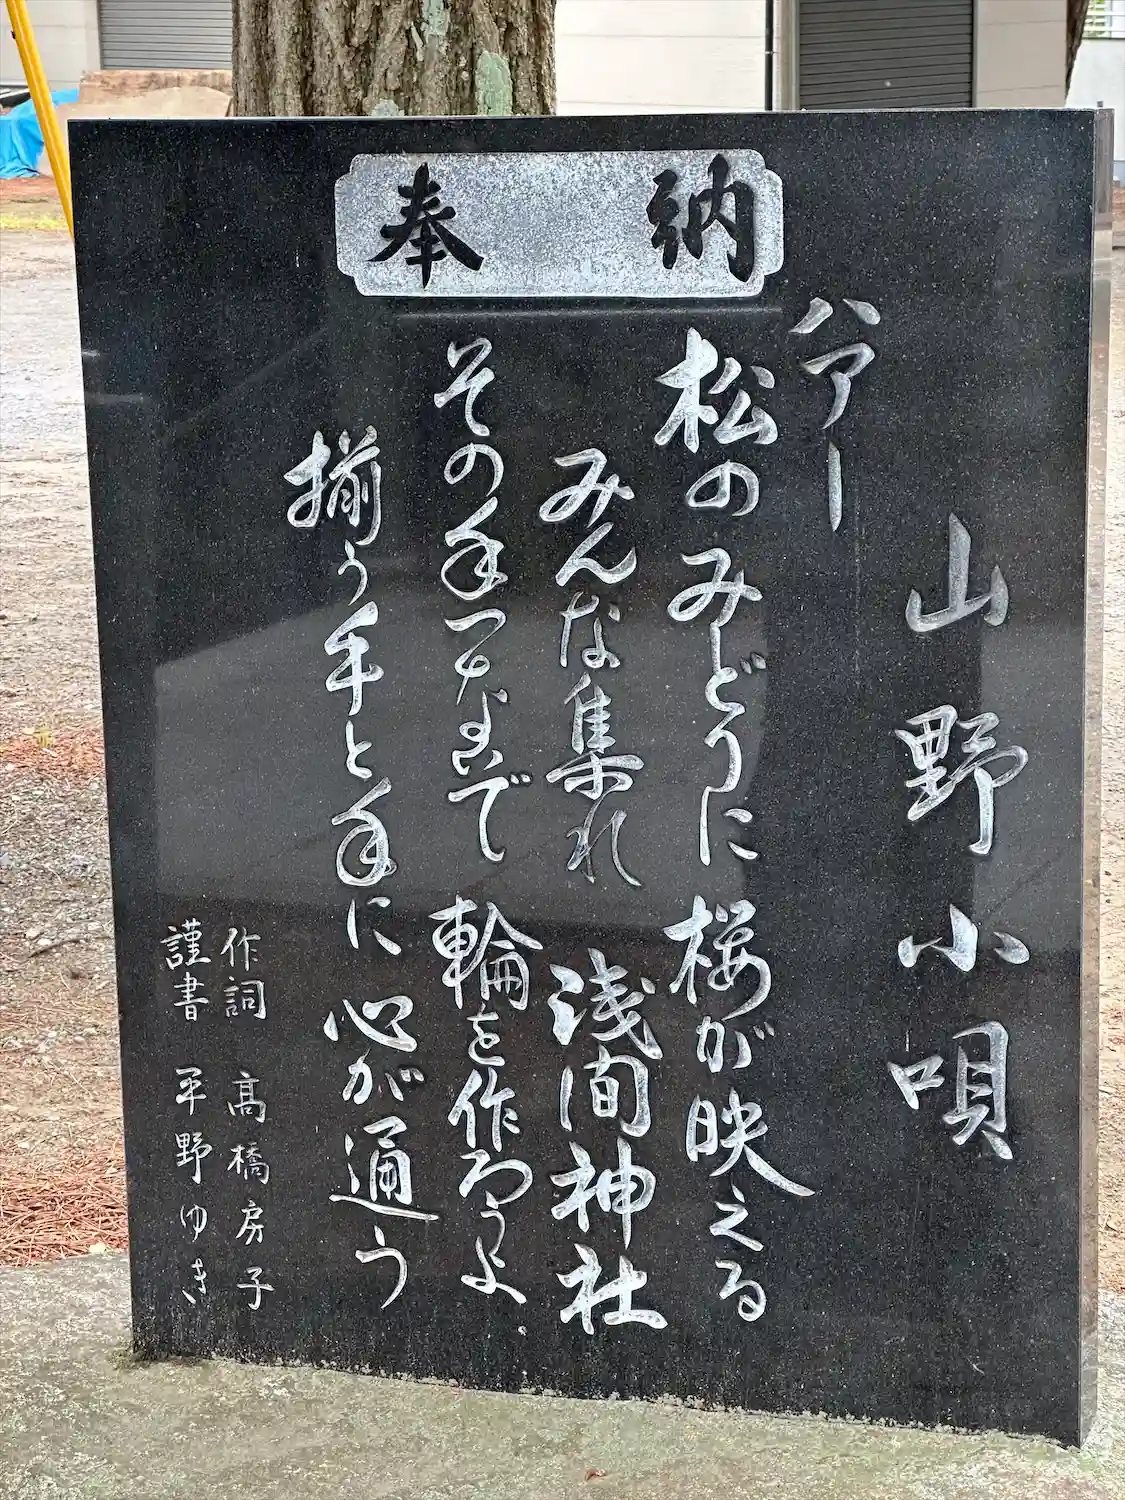 奉納
山野小唄
ハアー
松のみどりに桜が映える
みんな集れ 浅間神社
その手つないで 輪を作ろうよ
揃う手と手に 心が通う
作詞 髙橋房子
謹書 平野ゆき